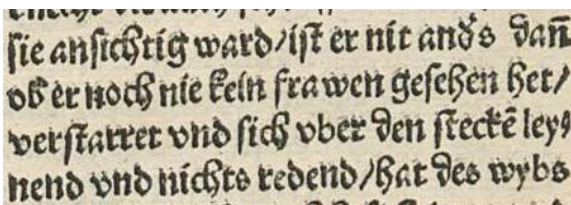 sie ansichtig ward/ist er nit and's dañ
ob er noch nie kein frawen gesehen het/
verstarret vnd sich vber den steckē ley⸗
nend vnd nichts redend/hat des wybs